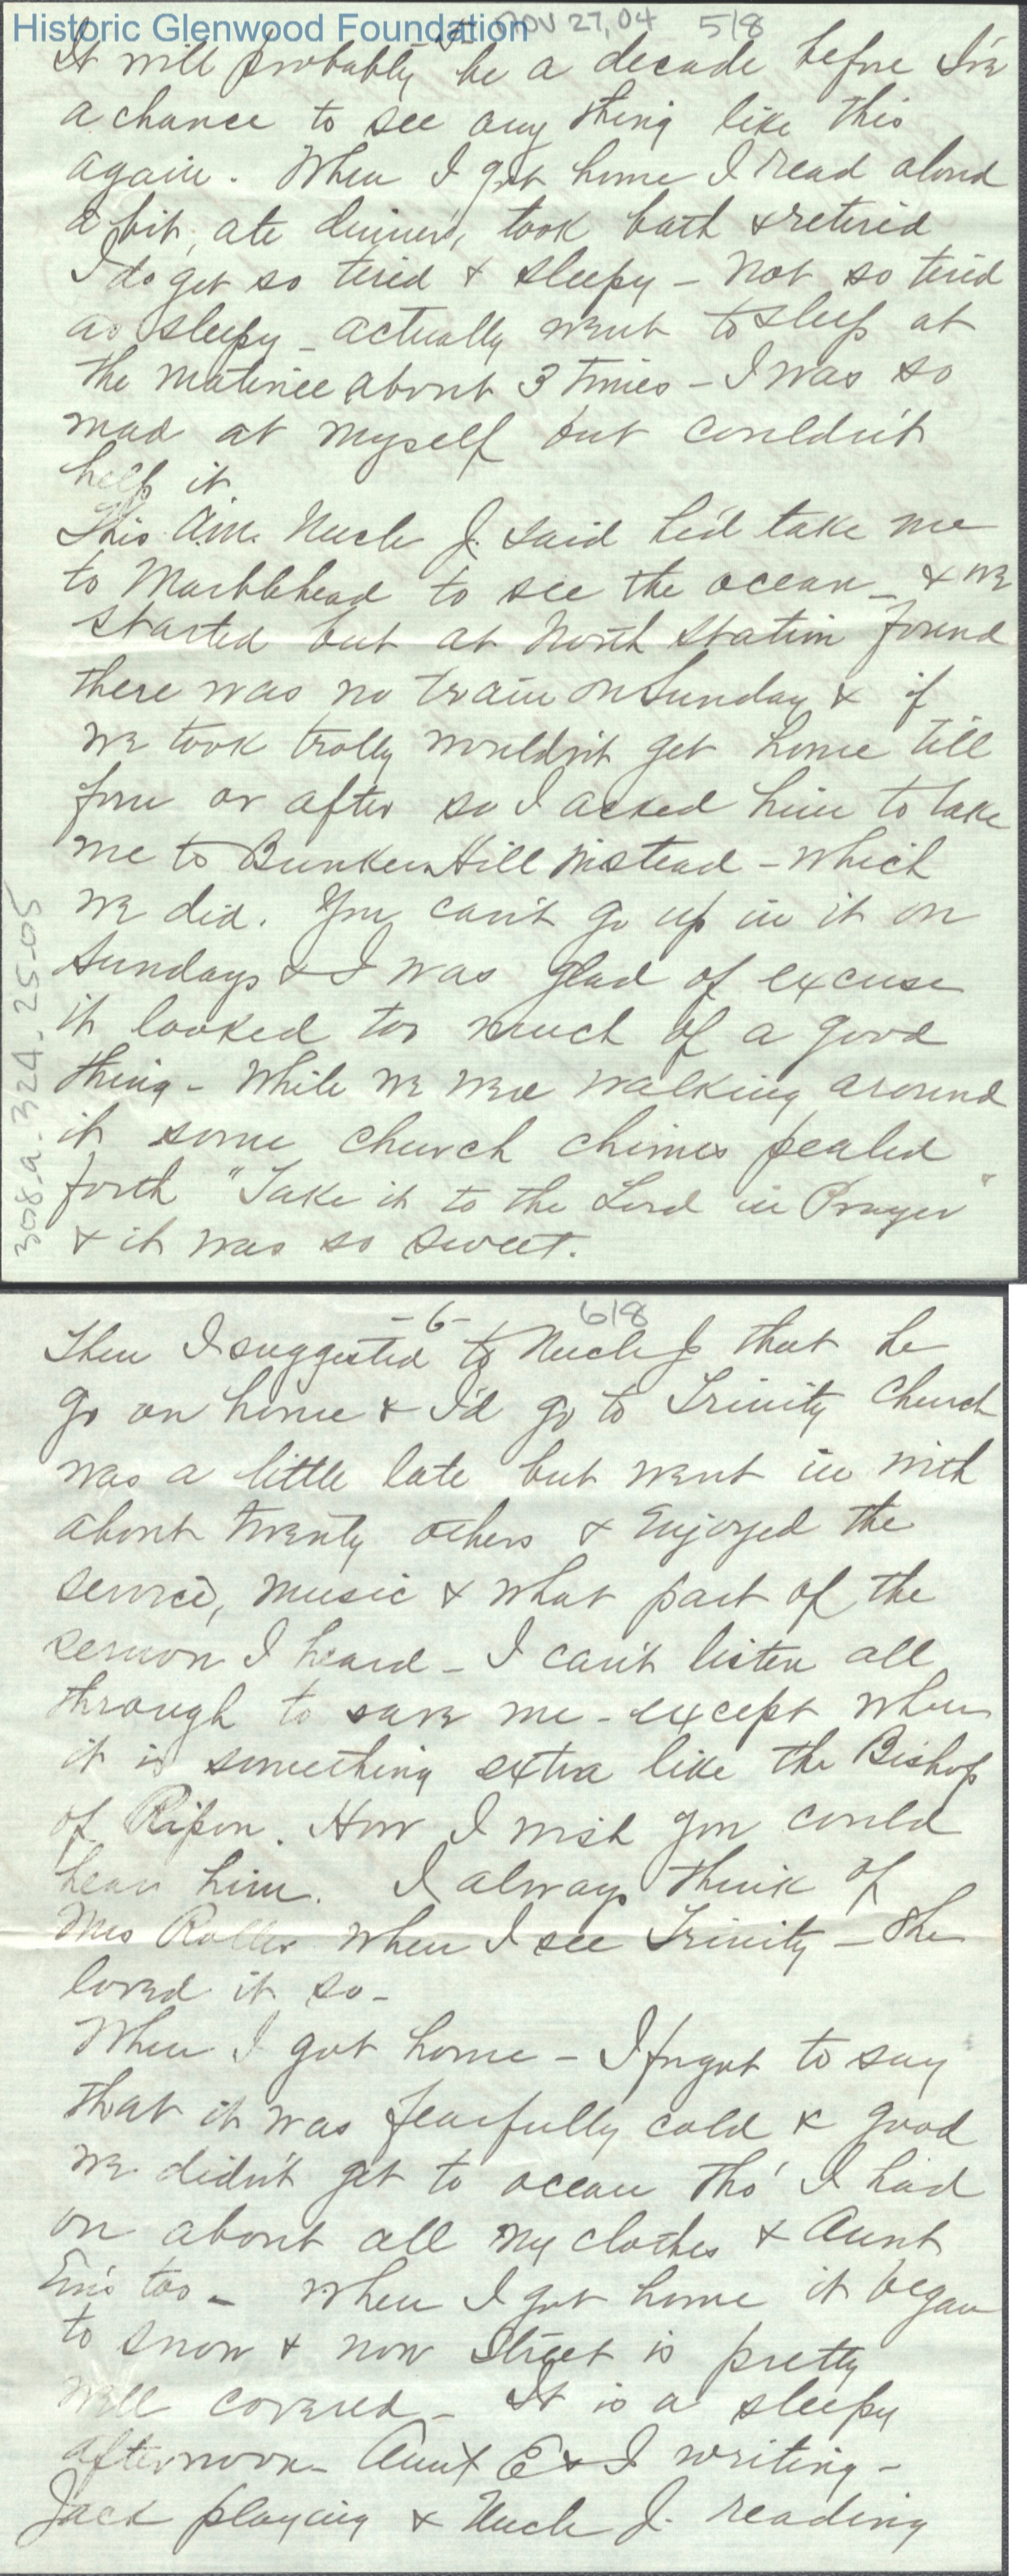 Historic Glenwood Foundation
-5- NOV 27, 04 5/8
It will probably be a decade before I've
a chance to see any thing like this
again. When I got home I read aloud
a bit, ate dinner, took bath & retired
I do get so tired & sleepy - not so tired
as sleepy - actually went to sleep at
the matinee about 3 times - I was so
mad at myself but couldn't
help it.
This a.m. Uncle J. said he'd take me
to Marblehead to see the ocean - & we
started but at North Station found
there was no train on Sunday & if
we took trolly wouldn't get home till
four or after so I asked him to take
me to Bunker Hill instead - which
we did. You can't go up in it on
Sundays & I was glad of excuse
it looked too much of a good
thing - While we were walking around
it some church chimes pealed
forth "Take it to the Lord in Prayer"
& it was so sweet.
308.a.324.25-05
-6- 6/8
Then I suggested to Uncle J that he
go on home & I'd go to Trinity Church
was a little late but went in with
about twenty others & enjoyed the
service, music & what part of the
sermon I heard - I can't listen all
through to save me - except when
it is something extra like the Bishop
of Ripon. How I wish you could
hear him. I always think of
Mrs Roller when I see Trinity - she
loved it so -
When I got home - I forgot to say
that it was fearfully cold & good
we didn't get to ocean tho' I had
on about all my clothes & Aunt
Em's too - When I got home it began
to snow & now street is pretty
well covered - It is a sleepy
afternoon - Aunt E & I writing -
Jack playing & Uncle J. reading